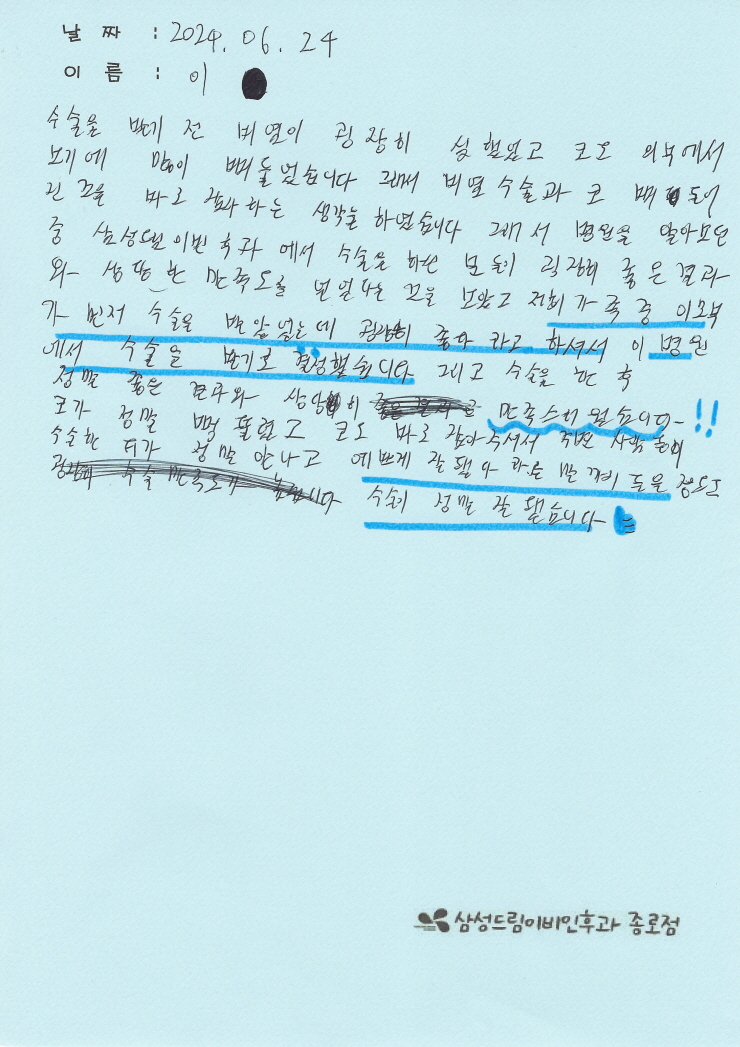 날 짜 : 2024. 06. 24
이 름 : 이
수술을 받기 전 비염이 굉장히 심했었고 코도 외부에서
보기에 많이 삐뚤었습니다 그래서 비염수술과 코 삐뚤어
진 것을 바로 잡아 하는 생각을 하였습니다 그래서 병원을 알아보던
중 삼성드림이빈후과 에서 수술을 하신 분들이 굉장히 좋은 결과
와 상당한 만족도를 얻었다는 것을 보았고 저희 가족 중 이모부
가 먼저 수술을 받았었는데 굉장히 좋다 라고 하셔서 이 병원
에서 수술을 받기로 결정했습니다 그리고 수술을 한 후
정말 좋은 결과와 상당히 만족스러웠습니다- !!
코가 정말 뻥 뚫렸고 코도 바로 잡아주셔서 주변 사람들이
수술한 티가 정말 안나고 예쁘게 잘됐다 하는 말까지 들을 정도로
수술이 정말 잘 됐습니다-
삼성드림이비인후과 종로점